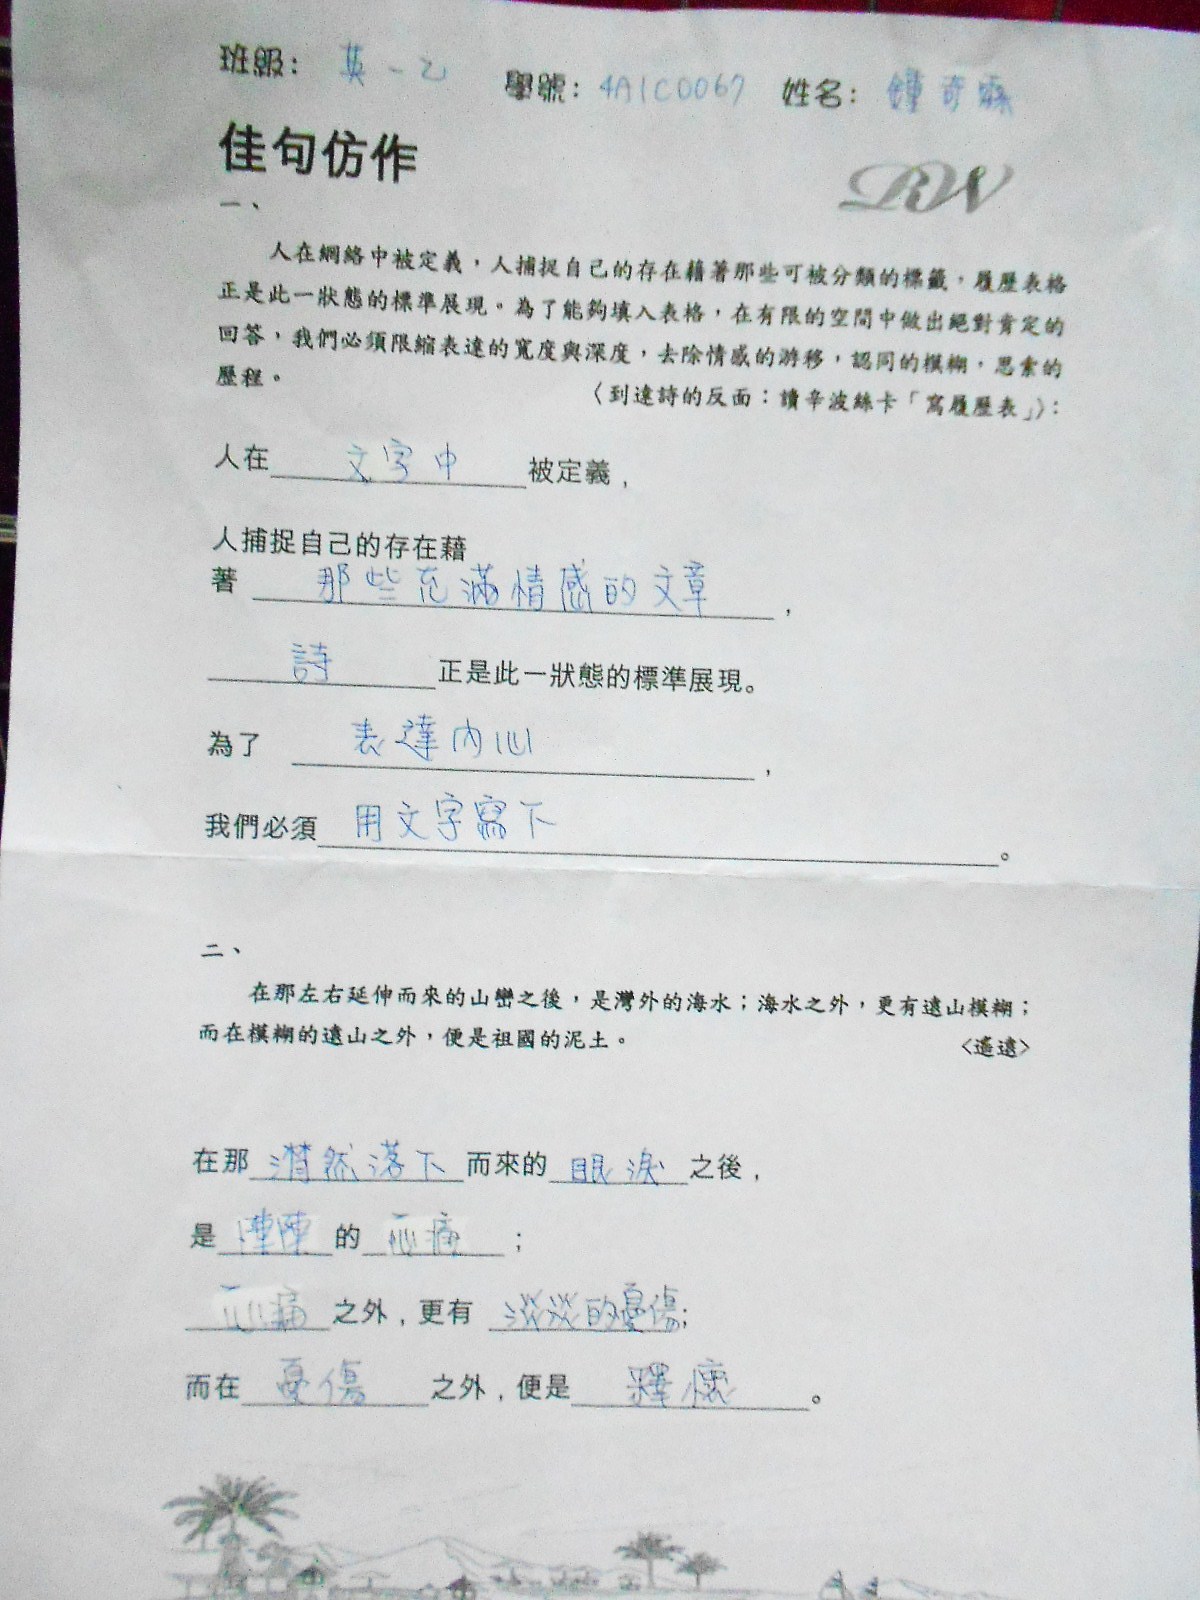 班級: 英一乙 學號: 4A1C0067 姓名: 鍾奇霖
佳句仿作
RW
一、
人在網絡中被定義，人捕捉自己的存在藉著那些可被分類的標籤，履歷表格
正是此一狀態的標準展現。為了能夠填入表格，在有限的空間中做出絕對肯定的
回答，我們必須限縮表達的寬度與深度，去除情感的游移，認同的模糊，思索的
歷程。 〈到達詩的反面：讀辛波絲卡「寫履歷表」〉:
人在 文字中 被定義，
人捕捉自己的存在藉
著 那些充滿情感的文章，
詩 正是此一狀態的標準展現。
為了 表達內心，
我們必須 用文字寫下。
二、
在那左右延伸而來的山巒之後，是灣外的海水；海水之外，更有遠山模糊；
而在模糊的遠山之外，便是祖國的泥土。 <遙遠>
在那 潸然落下 而來的 眼淚 之後，
是 陣陣 的 心痛；
心痛 之外，更有 淡淡的憂傷;
而在 憂傷 之外，便是 釋懷。